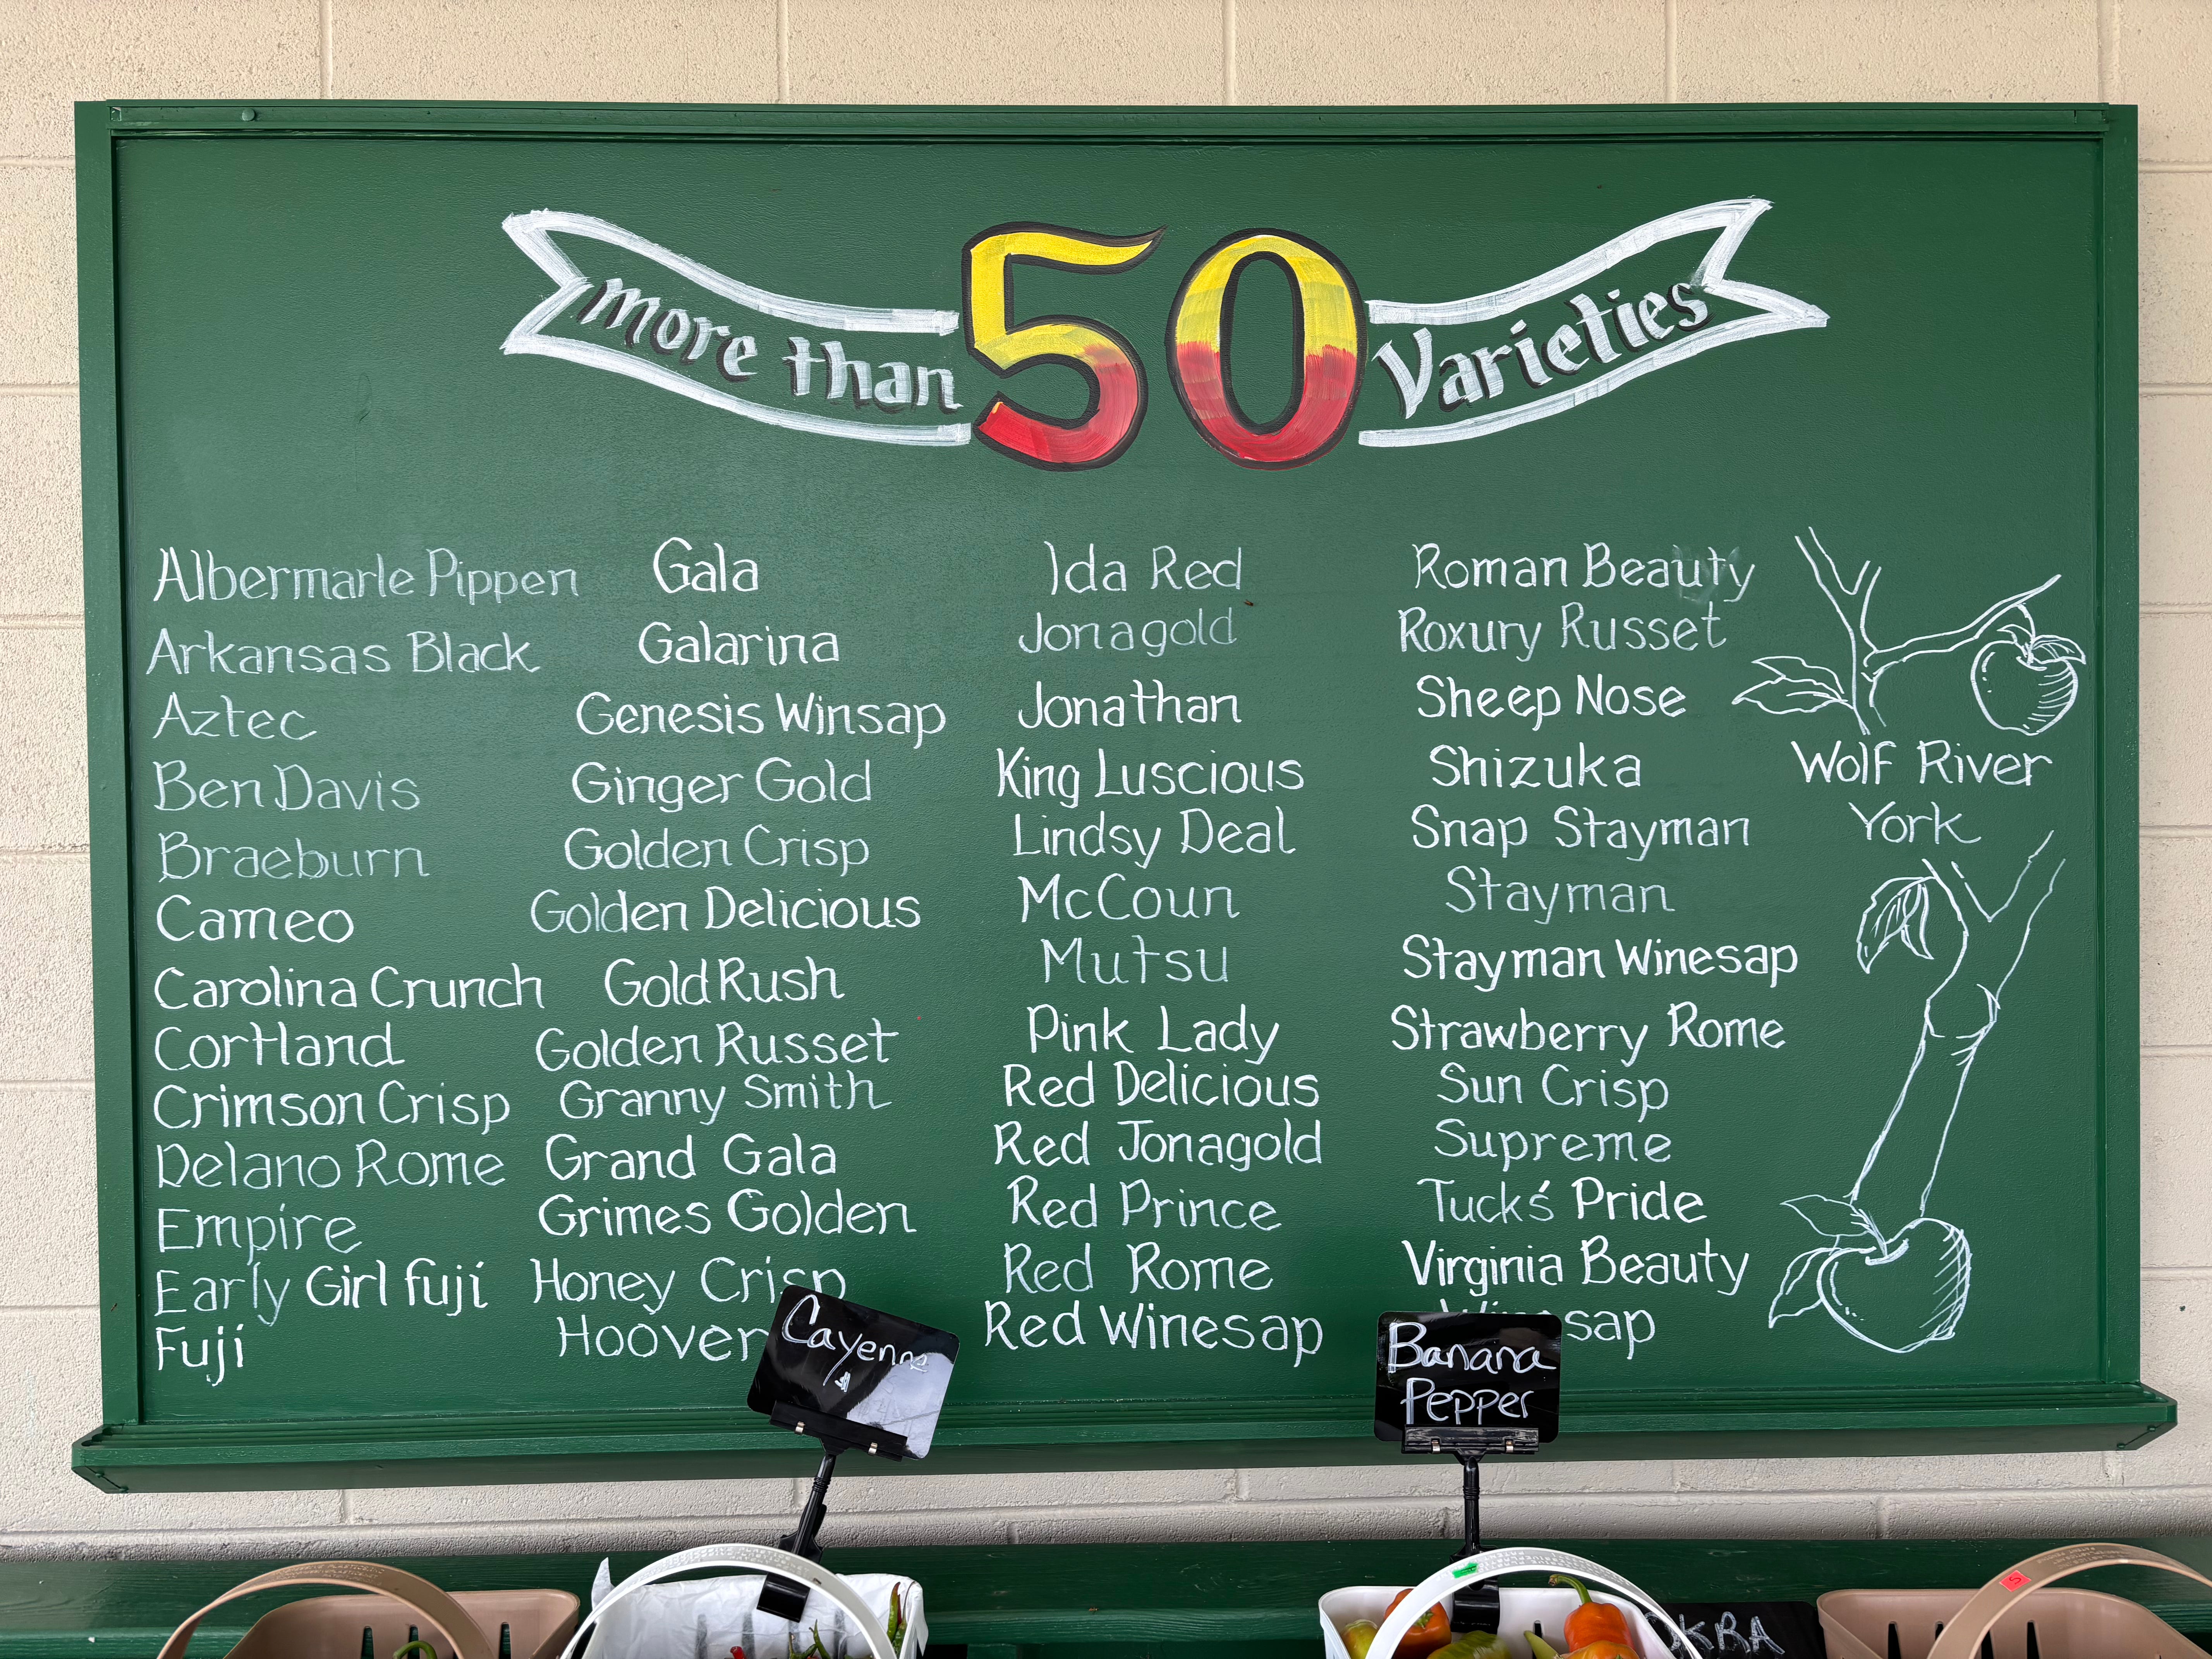 more than 50 Varieties
Albermarle Pippen
Arkansas Black
Aztec
Ben Davis
Braeburn
Cameo
Carolina Crunch
Cortland
Crimson Crisp
Delano Rome
Empire
Early Girl fuji
Fuji
Gala
Galarina
Genesis Winsap
Ginger Gold
Golden Crisp
Golden Delicious
Gold Rush
Golden Russet
Granny Smith
Grand Gala
Grimes Golden
Honey Crisp
Hoover
Ida Red
Jonagold
Jonathan
King Luscious
Lindsy Deal
McCoun
Mutsu
Pink Lady
Red Delicious
Red Jonagold
Red Prince
Red Rome
Red Winesap
Roman Beauty
Roxury Russet
Sheep Nose
Shizuka
Snap Stayman
Stayman
Stayman Winesap
Strawberry Rome
Sun Crisp
Supreme
Tuck's Pride
Virginia Beauty
Winesap
Wolf River
York
Cayenne
Banana
Pepper
OKRA